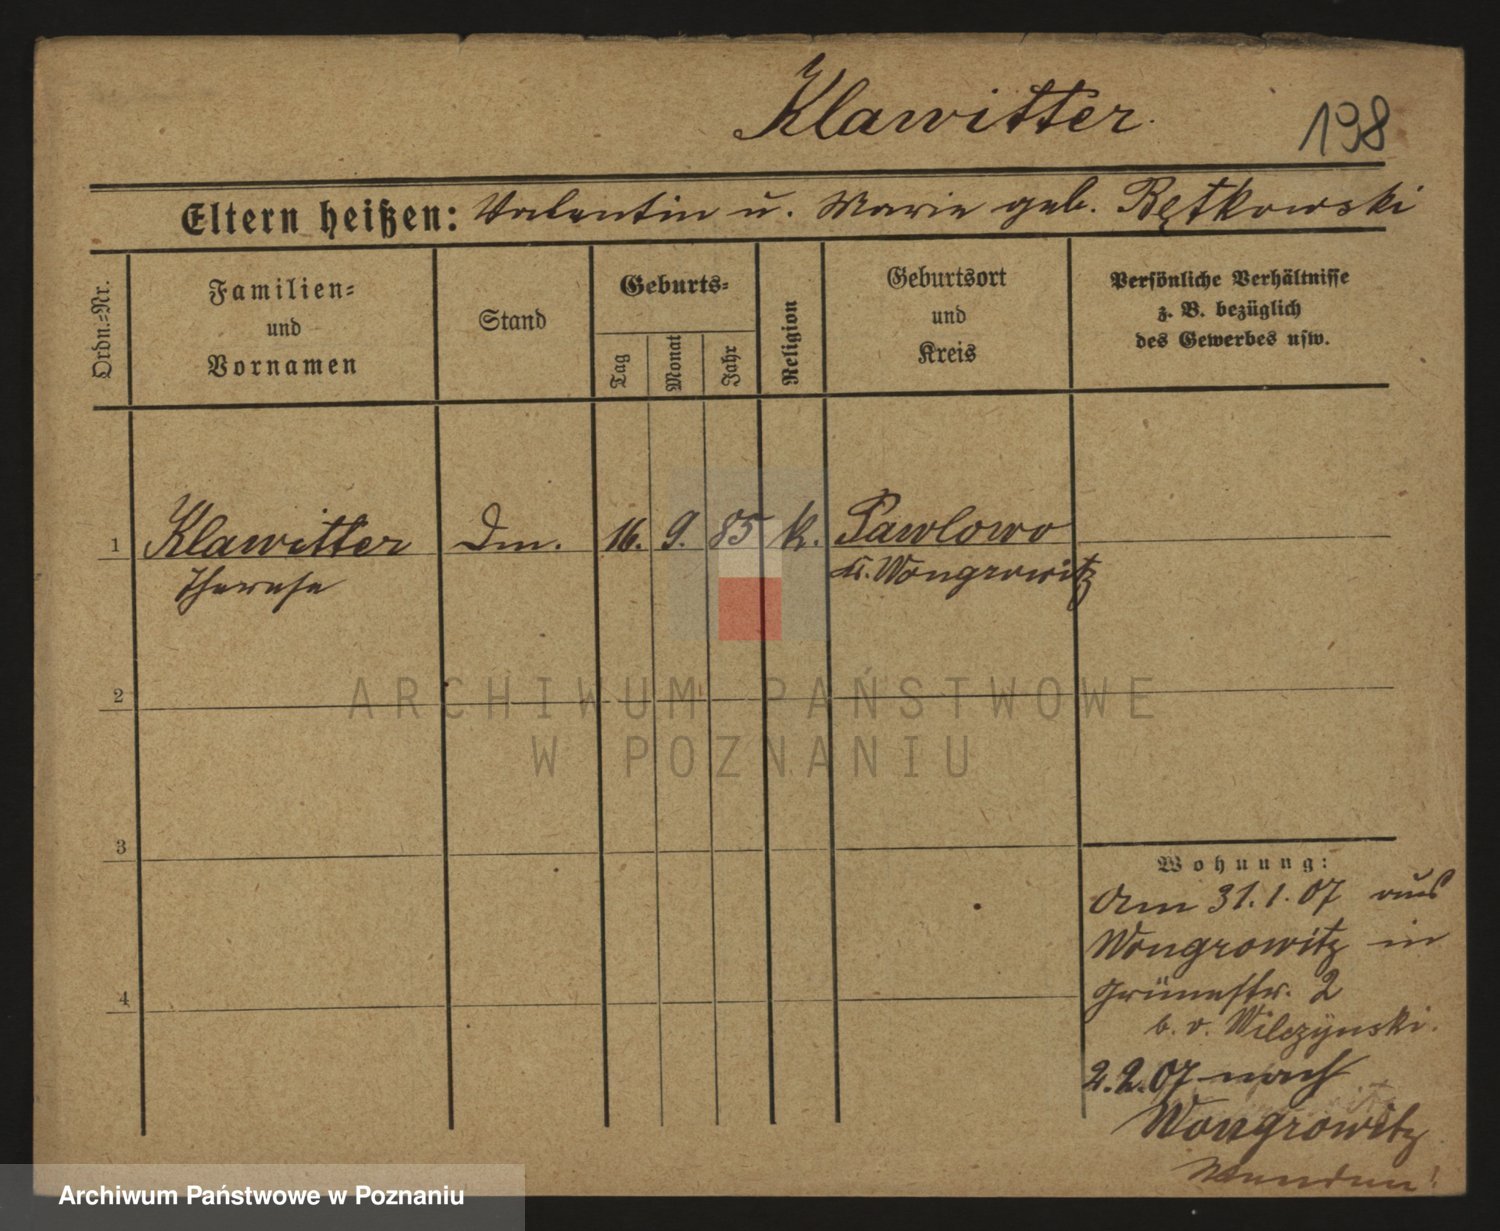 Klawitter.
198
Eltern heißen: Valentin u. Marie geb. Rętkowski
Ordn.-Nr.
Familien-
und
Vornamen
Stand
Geburts-
Tag
Monat
Jahr
Religion
Geburtsort
und
Kreis
Persönliche Verhältnisse
z. B. bezüglich
des Gewerbes usw.
1 Klawitter Dm. 16. 9. 85 k. Pawlowo
Therese Kr. Wongrowitz
2
3
4
Wohnung:
Am 31.1.07 aus
Wongrowitz in
Grünestr. 2
b. v. Wilczynski.
2.2.07 nach
Wongrowitz
Wenden!
ARCHIWUM PAŃSTWOWE
W POZNANIU
Archiwum Państwowe w Poznaniu